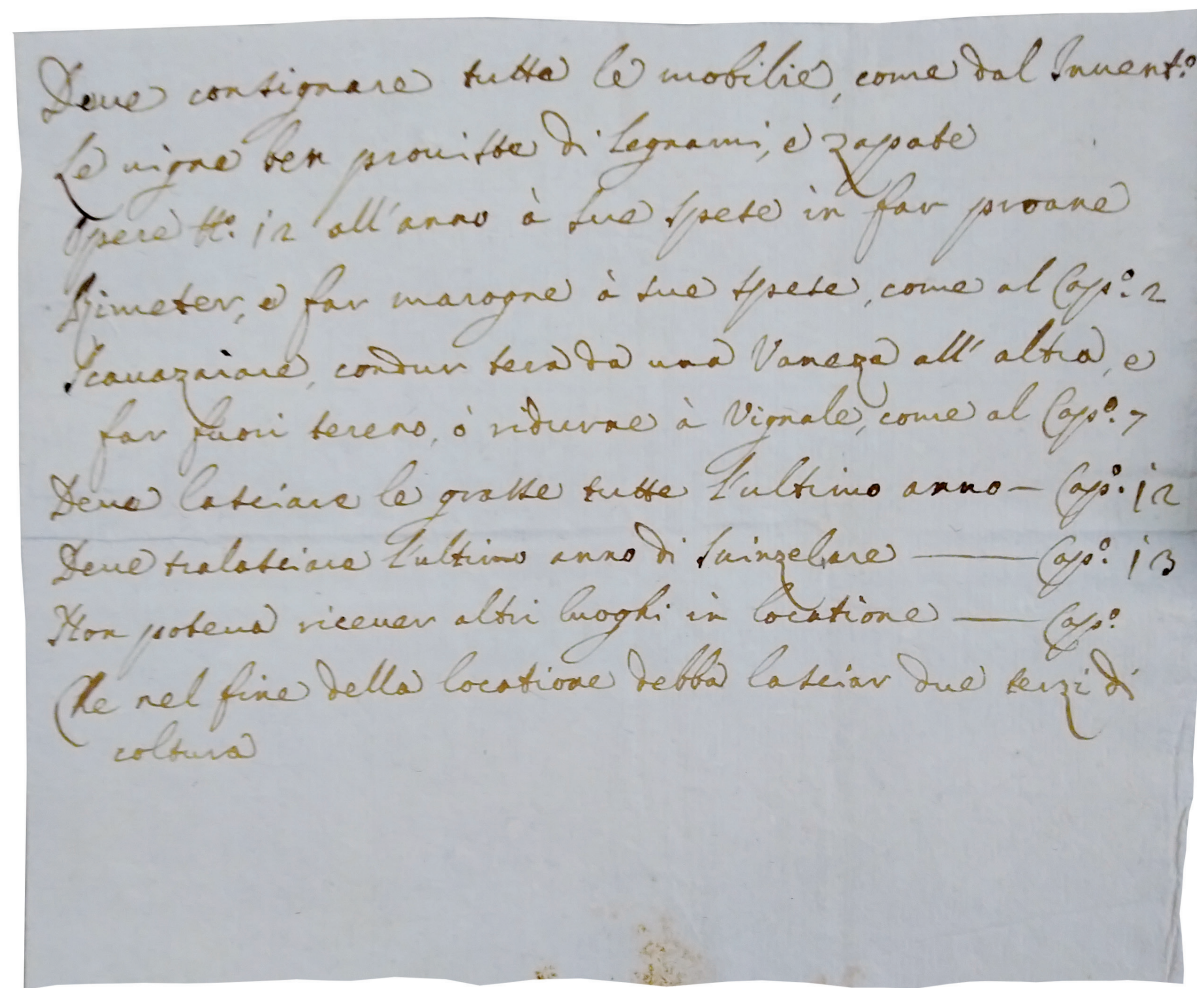 Deve consignare tutte le mobilie, come dal Invent.o
Le vigne ben provitte di legnami, e zapate
opere N.o 12 all'anno à sue spese in far proane
Rimeter, e far marogne à sue spese, come al Cap.o 2
Scavazaiare, condur tera da una Vaneza all'altra, e
far fuori tereno, ò ridurne à Vignale, come al Cap.o 7
Deve lasciare le grasse tutte l'ultimo anno — Cap.o 12
Deve tralasciare l'ultimo anno di Svinzelare — Cap.o 13
Non poterà ricever altri luoghi in locatione — Cap.o
Che nel fine della locatione debba lasciar due terzi di
coltura